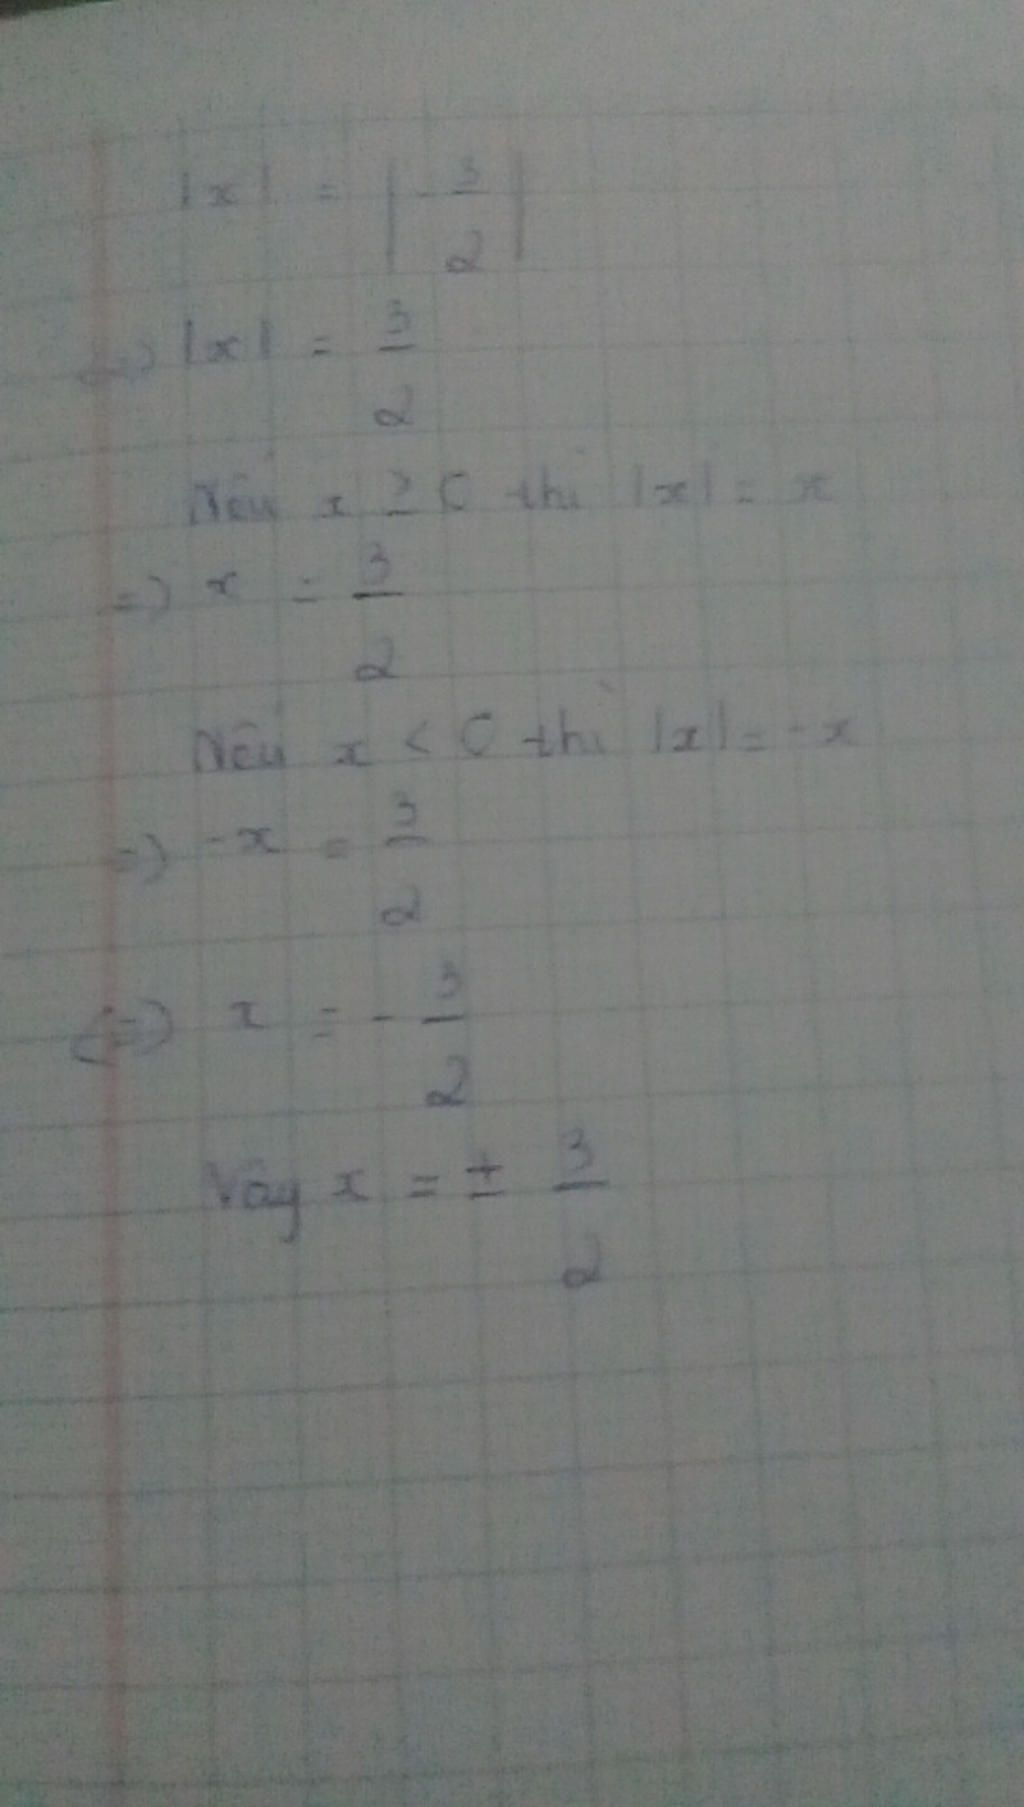 |x| = |-3/2|
<=> |x| = 3/2
Nếu x ≥ 0 thì |x| = x
=> x = 3/2
Nếu x < 0 thì |x| = -x
=> -x = 3/2
<=> x = - 3/2
Vậy x = ± 3/2